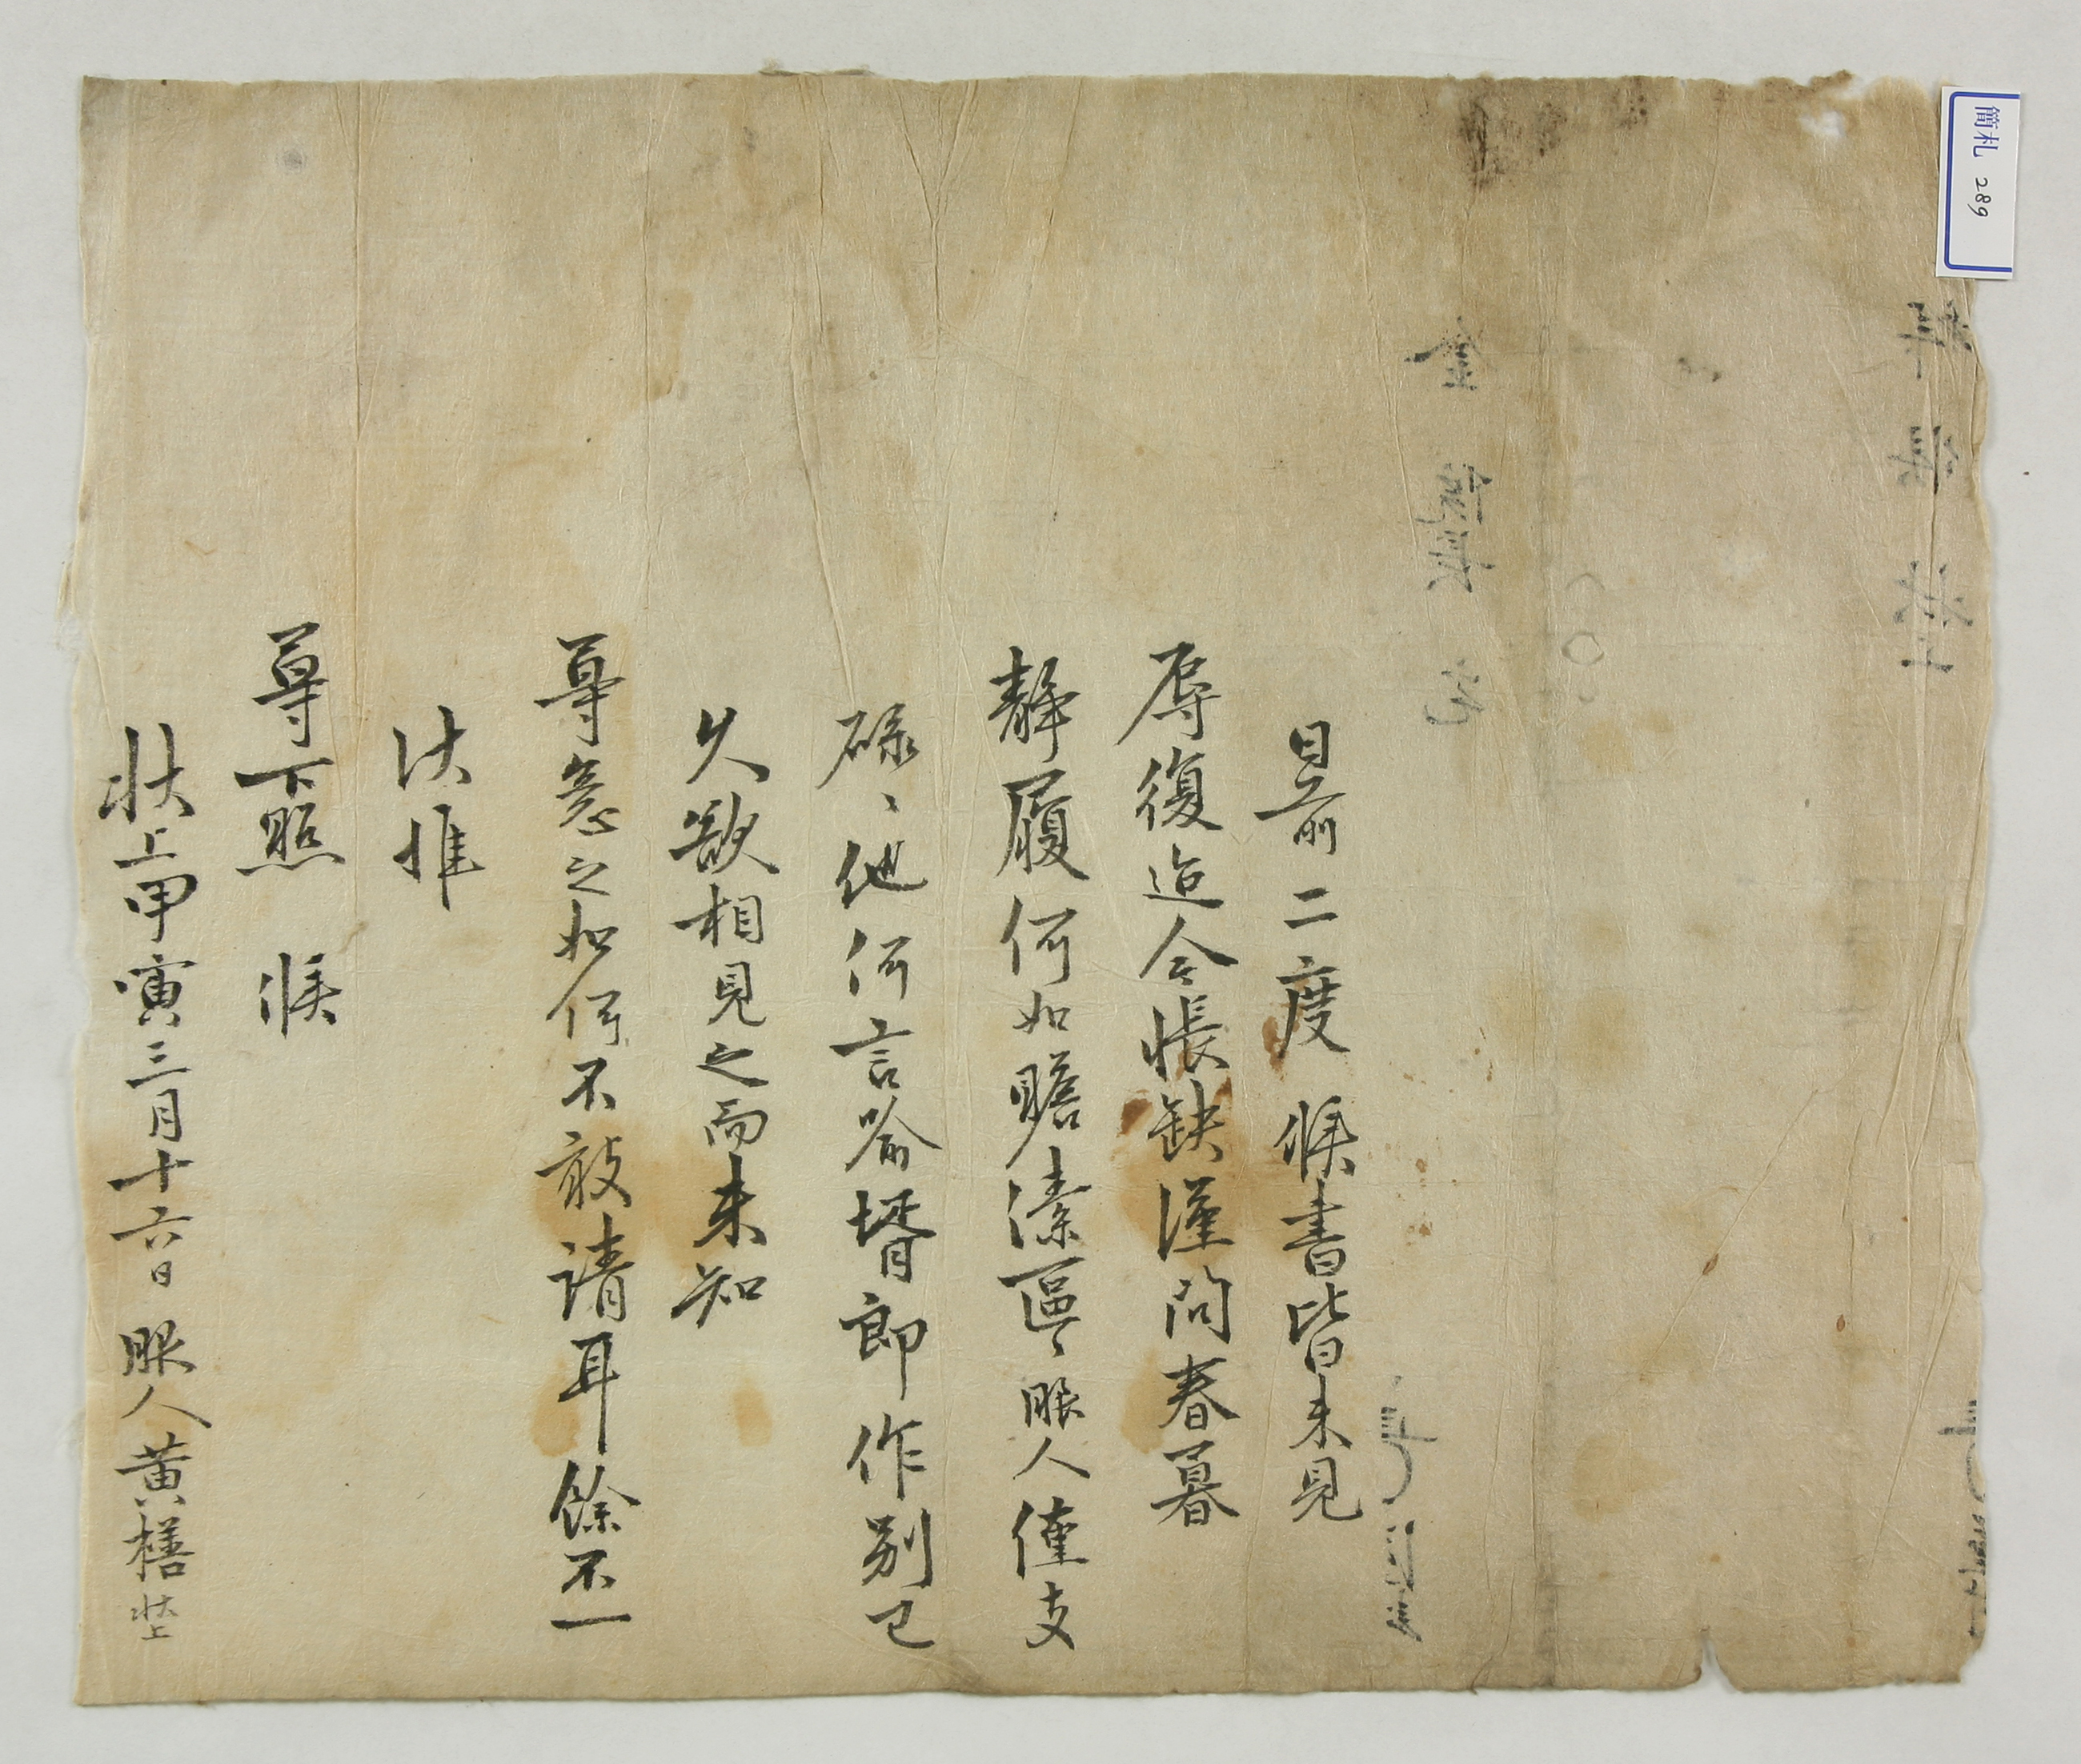 簡札 289
日前二度候書皆未見
辱復迨今悵缺謹問春暮
靜履何如瞻溱區〻服人僅支
碌〻他何言喻壻郞作別已
久欲相見之而未知
尊意之如何不敢請耳餘不一
伏惟
尊下照 候
狀上甲寅三月十六日服人黃㮛狀上